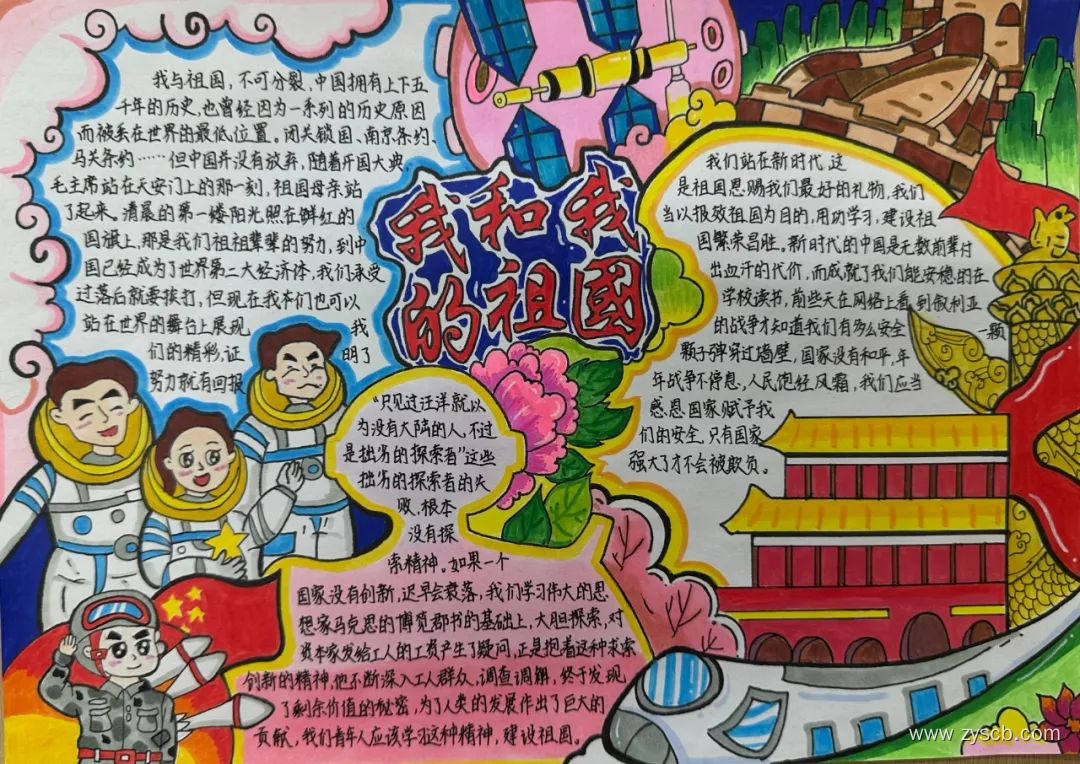 我和我
的祖國
我与祖国，不可分裂，中国拥有上下五
千年的历史，也曾经因为一系列的历史原因
而被丢在世界的最低位置。闭关锁国、南京条约、
马关条约……但中国并没有放弃，随着开国大典
毛主席站在天安门上的那一刻，祖国母亲站
了起来。清晨的第一缕阳光照在鲜红的
国旗上，那是我们祖祖辈辈的努力，到中
国已经成为了世界第二大经济体，我们承受
过落后就要挨打，但现在我本们也可以
站在世界的舞台上展现 我
们的精彩，证 明了
努力就有回报
“只见过汪洋就以
为没有大陆的人，不过
是拙劣的探索者”这些
拙劣的探索者的失
败，根本
没有探
索精神。如果一个
国家没有创新，迟早会衰落，我们学习伟大的思
想家马克思的博览群书的基础上，大胆探索，对
资本家发给工人的工资产生了疑问，正是抱着这种求索
创新的精神，他不断深入工人群众，调查调解，终于发现
了剩余价值的秘密，为了人类的发展作出了巨大的
贡献，我们青年人应该学习这种精神，建设祖国。
我们站在新时代，这
是祖国恩赐我们最好的礼物，我们
当以报效祖国为目的，用功学习，建设祖
国繁荣昌胜。新时代的中国是无数前辈付
出血汗的代价，而成就了我们能安稳的在
学校读书，前些天在网络上看到叙利亚
的战争才知道我们有多么安全 一颗
颗子弹穿过墙壁，国家没有和平，年
年战争不停息，人民饱经风霜，我们应当
感恩国家赋予我
们的安全，只有国家
强大了才不会被欺负。
www.zyscb.com